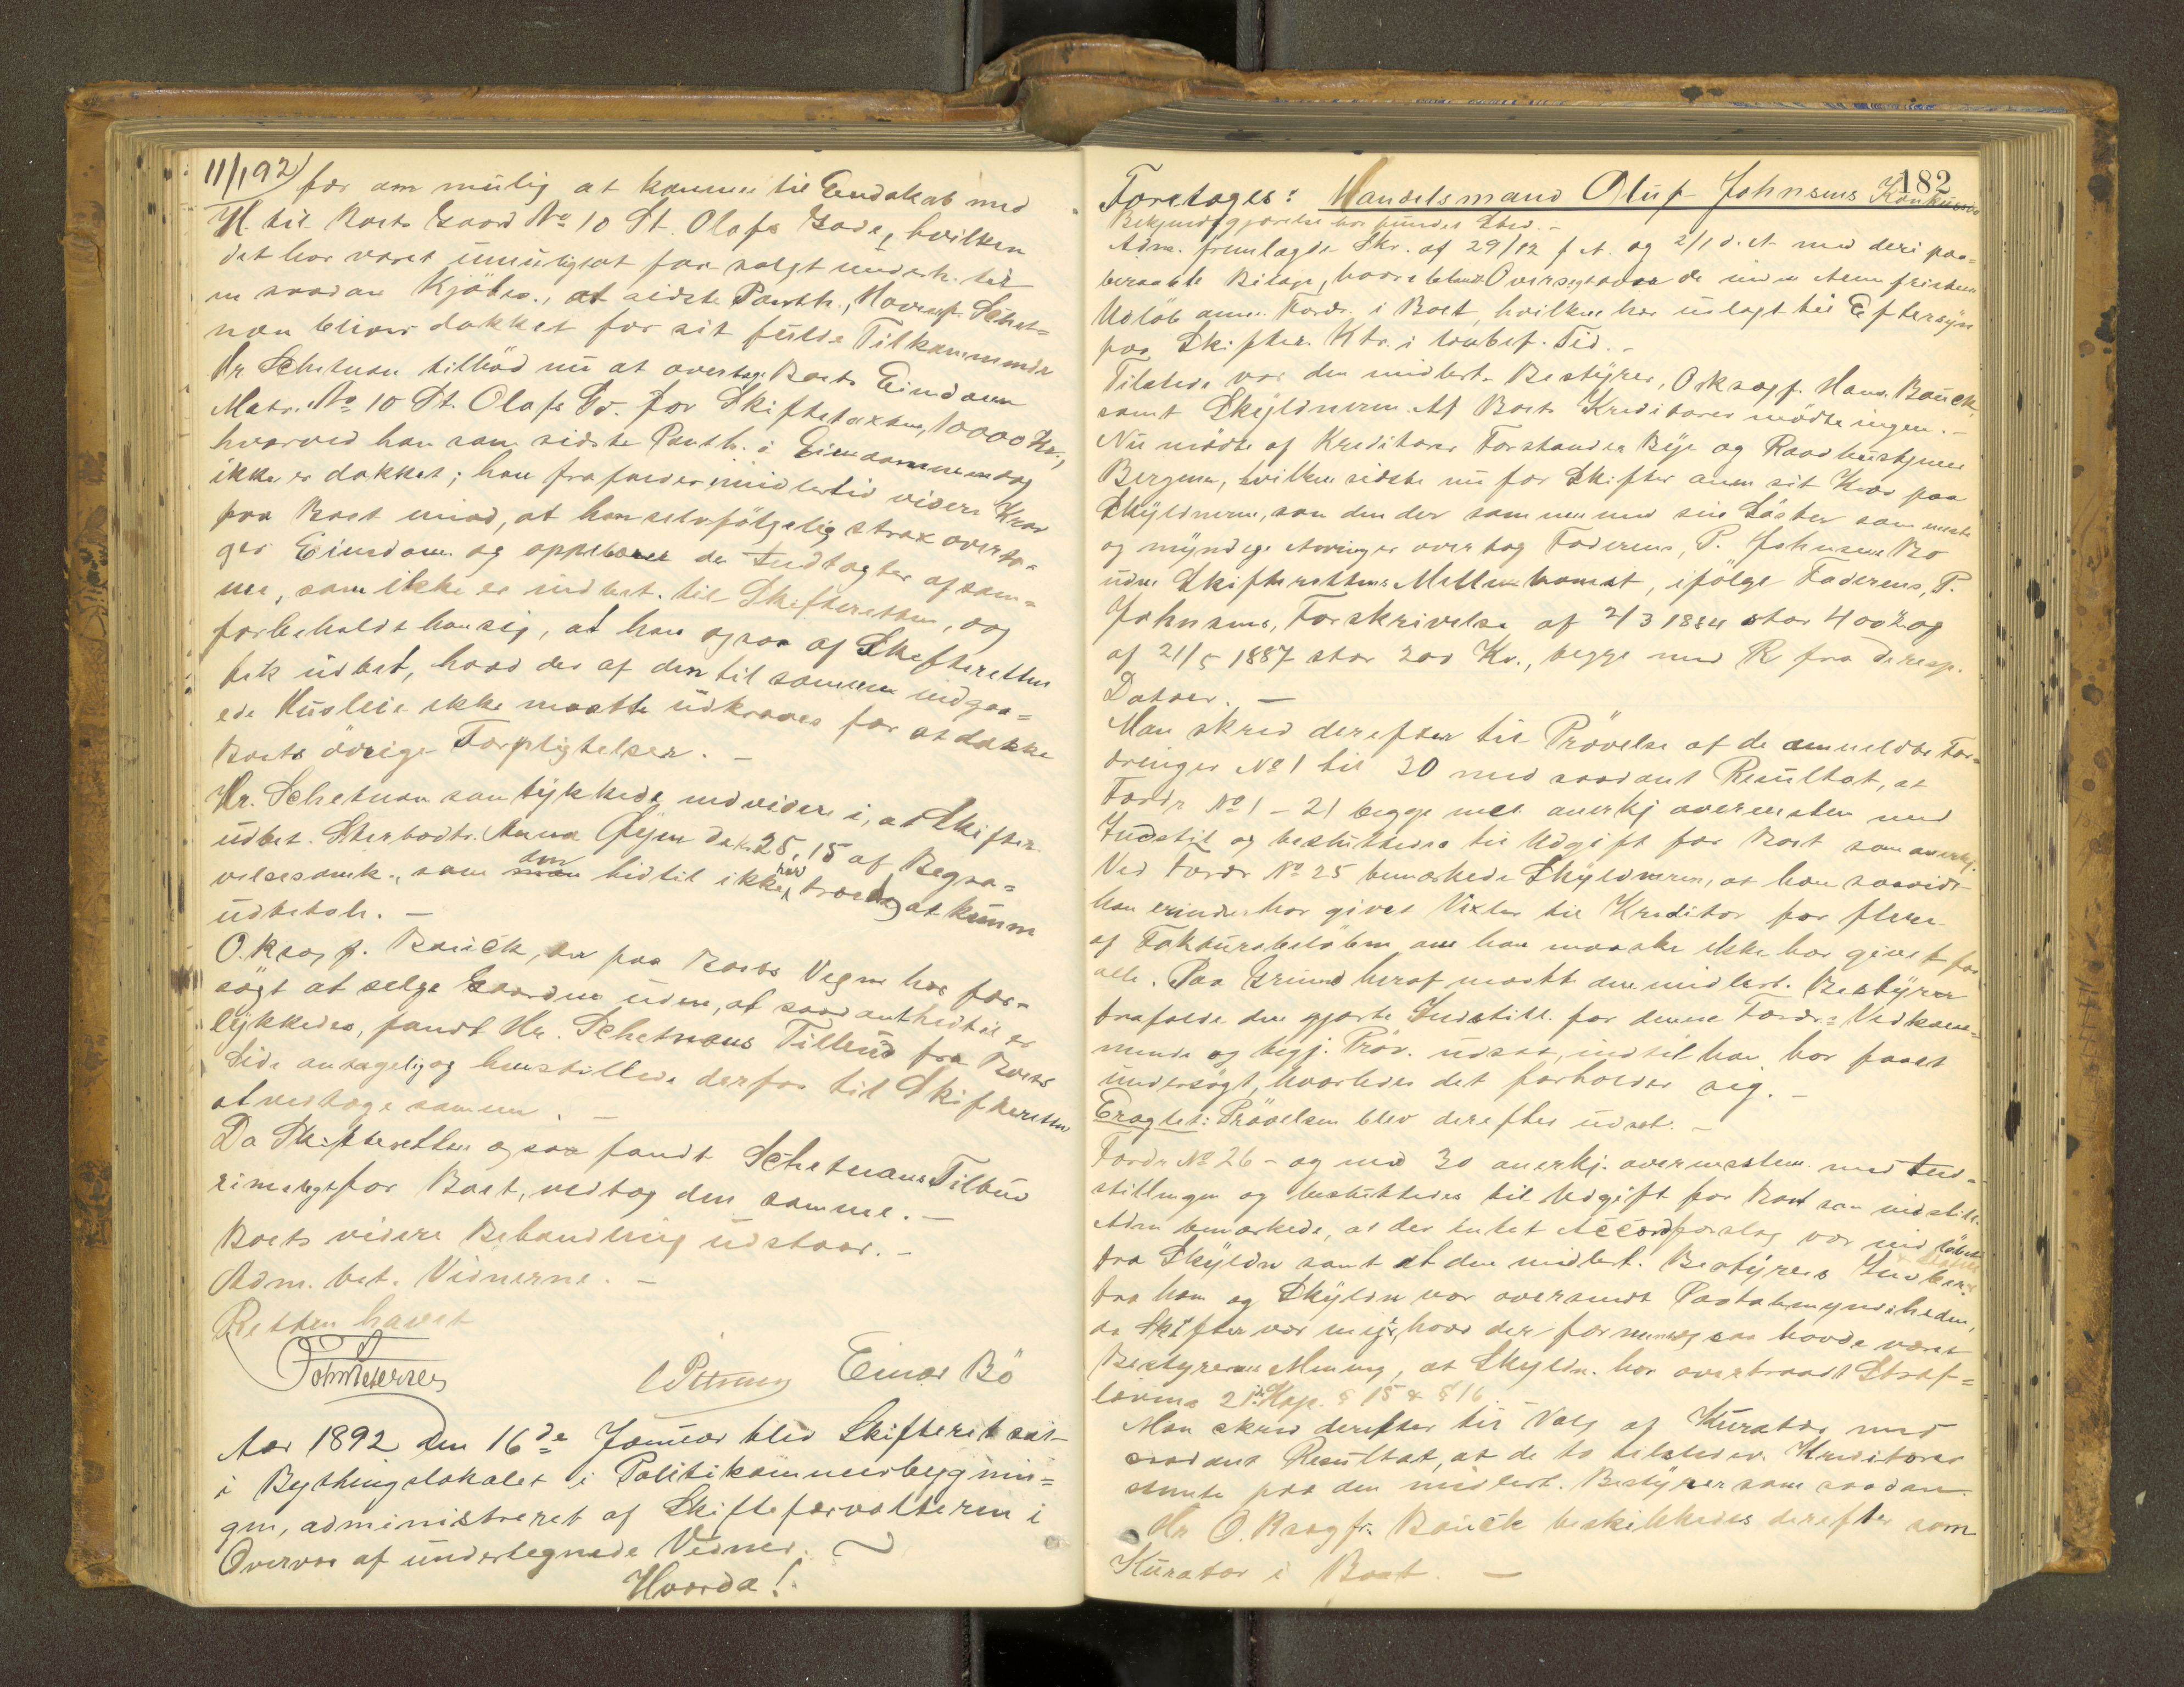 11/1 92) for om mulig at komme til Eendskab med
H. til Boets Gaard No 10 St. Olafs Gade, hvilken
det har været umuligt at faa solgt underh. til
en saadan Kjöbes., at sidste Panth., Hovedf. Schet=
nan bliver dækket for sit fulde Tilkommende
Hr. Schetnan tilböd nu at overtage Boets Eiendom
Matr. No 10 St. Olafs Gd. for Skiftetaxten, 10000 Kr.,
hvorved han som sidste Panth. i Eiendommen dog
ikke er dækket; han frafalder imidlertid videre Krav
paa Boet imod, at han selvfölgelig strax overta=
ger Eiendom og oppebærer de Indtægter af sam=
me, som ikke er indbet. til Skifteretten, og
forbeholdt han sig, at han ogsaa af Skifteretten
fik udbet, hvad der af den til samme indgaa=
ede Husleie ikke maatte udkræves for at dække
Boets övrige Forpligtelser. –
Hr. Schetnan samtykkede endvidere i, at Skifter.
udbet. Sterbodts. Anna Öyen de Kr. 25,15 af Begra=
velsesomk., som den hidtil ikke har troet at kunne
udbetale. –
O.Rsagf. Bauck, der paa Boets Vegne har for=
sögt at selge Gaarden uden, at saadant hidtil er
lykkedes, fandt Hr. Schetnans Tilbud fra Boets
Side antagelig og henstillede derfor til Skifteretten
at vedtage samme. –
Da Skifteretten ogsaa fandt Schetnans Tilbud
rimeligt for Boet, vedtog den samme. –
Boets videre Behandling udstaar. –
Adm. bet. Vidnerne. –
Retten hævet
Einar Bö
Aar 1892 den 16de Januar blev Skifteret sat
i Bythingslokalet i Politikammerbygnin=
gen, administreret af Skifteforvalteren i
Overvær af undertegnede Vidner.
Hvorda!
182
Foretoges: Handelsmand Oluf Johnsens Konkursbo
Bekjendtgjørelse har fundet Sted. –
Adm. fremlagde Skr. af 29/12 f. A. og 2/1 d. A. med deri paa=
beraabte Bilage, hvoriblandt Oversigt over de inden Anm fristens
Udlöb anm. Fordr. i Boet, hvilken har udlagt til Eftersyn
paa Skifter. Ktr. i lovbef. Tid. –
Tilstede var den midlert. Bestyrer, O Rsagf. Hans Bauck,
samt Skyldneren. Af Boets Kreditorer mödte ingen. –
Nu mödte af Kreditorer Forstander Bye og Raadhustjener
Bergman, hvilken sidste nu for Skifter anm sit Krav paa
Skyldneren, som den der sammen med sin Söster som eneste
og myndige Arvinger overtog Faderens, P. Johnsens Bo
uden Skifterettens Mellemkomst, ifölge Faderens, P.
Johnsens, Forskrivelse af 2/3 1884 stor 400 K og
af 21/5 1887 stor 200 Kr., begge med R fra de resp.
Datoer. –
Man skred derefter til Prövelse af de anmeldte For=
dringer No 1 til 30 med saadant Resultat, at
Fordr No 1 – 21 begge incl anerkj overensstem med
Indstil og besluttedes til Udgift for Boet som anerkj.
Ved Fordr No 25 bemærkede Skyldneren, at han saavidt
han erindrer har givet Vexler til Kreditor for flere
af Fakturabelöbene, om han maaske ikke har givet for
alle. Paa Grund heraf maatte den midlert. Bestyrer
frafalde den gjorte Indstill. for denne Fordr: Vedkom=
mende og begj. Pröv. udsat, indtil han har faaet
undersögt, hvorledes det forholder sig. –
Eragtet: Prövelsen blev derefter udsat. –
Fordr No 26 – og med 30 anerkj. overensstem. med Ind=
stillingen og besluttedes til Udgift for Boet som indstill.
Adm bemærkede, at der intet Accordforslag var indlöbet
fra Skyldn samt at den midlert. Bestyrers Indber.
fra ham og Skyldn var oversendt Paatalemyndigheden,
da Skifter var enig i, hvad der formentlig saa havde været
Bestyrerens Mening, at Skyldn. har overtraadt Straf=
lovens 21de Kap. § 15 & § 16
Man skred derefter til Valg af Kurator med
saadant Resultat, at de to tilstedev. Kreditorer
stemte paa den midlert. Bestyrer som saadan.
Hr O.Rsagf. Bauck beskikkedes derefter som
Kurator i Boet. –